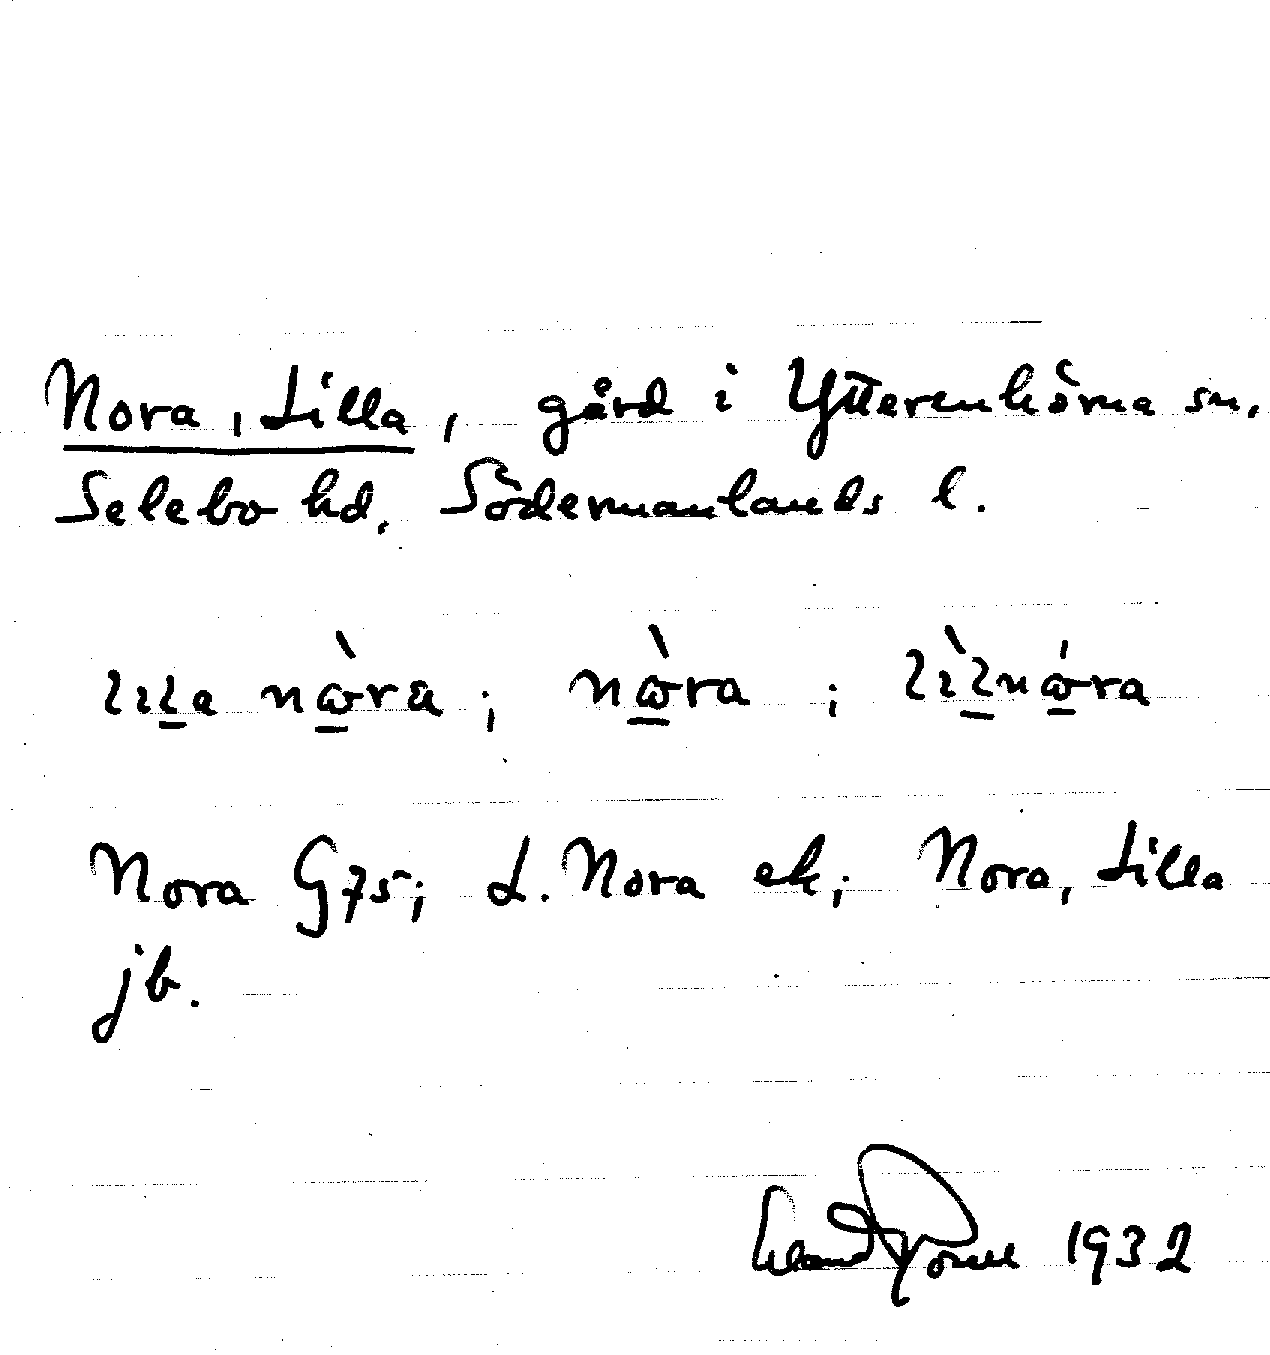 Nora, Lilla, gård i Ytterenhörna sn,
Selebo hd, Södermanlands l.
lıla nɷ̀ra; nɷ̀ra; lı̀lnɷ́ra
Nora G75; L. Nora ek; Nora, Lilla
jb.
1932